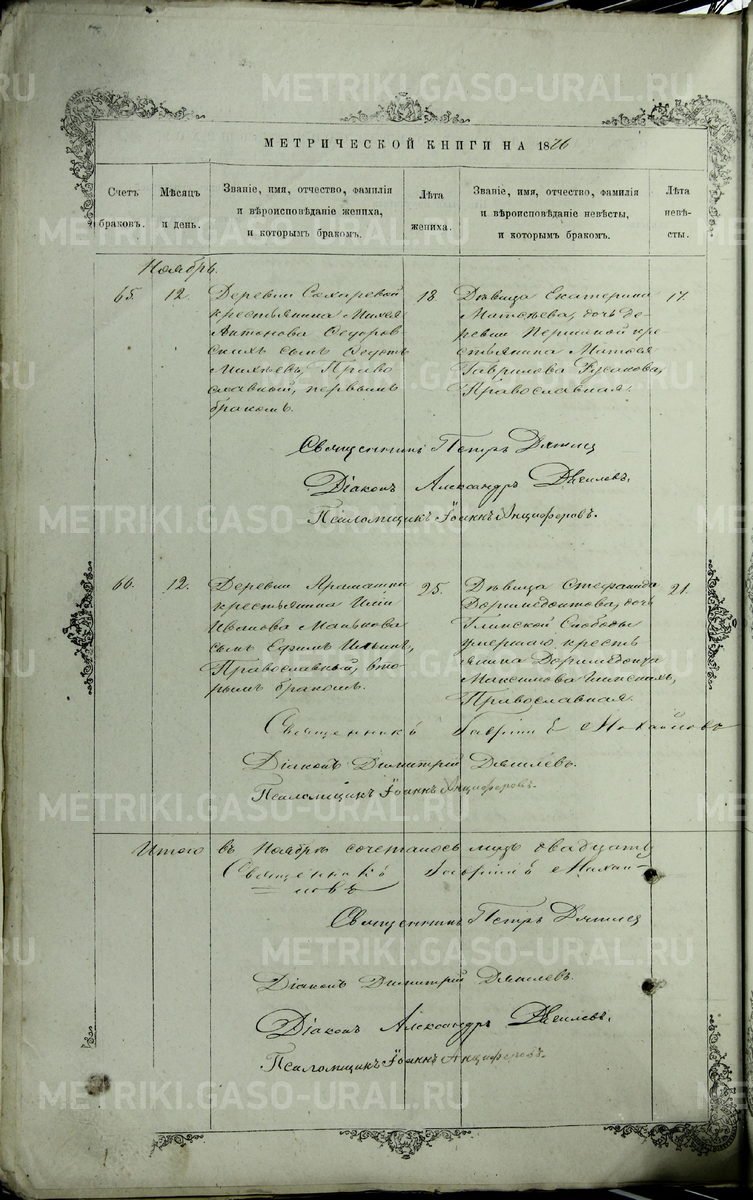 МЕТРИЧЕСКОЙ КНИГИ НА 1876
Счетъ браковъ.
Мѣсяцъ и день.
Званіе, имя, отчество, фамилія
и вѣроисповѣданіе жениха,
и которымъ бракомъ.
Лѣта жениха.
Званіе, имя, отчество, фамилія
и вѣроисповѣданіе невѣсты,
и которымъ бракомъ.
Лѣта невѣсты.
Ноябрь.
65. 12.
Деревни
крестьянина Михея
Антонова Ѳедоров
скихъ сынъ
Михѣевъ, Право
славный, первымъ
бракомъ.
18
Дѣвица Екатерина
Матвѣева, дочь де
ревни кре
стьянина Матвея
Гаврилова Русакова,
Православная.
17.
Священникъ Петръ
Діаконъ Александръ
Псаломщикъ Іоаннъ Анциферовъ.
66. 12.
Деревни Арамашки
крестьянина Ильи
Иванова Манькова
сынъ Ефимъ Ильинъ,
Православный, вто
рымъ бракомъ.
25.
Дѣвица Стефанида
Доримедонтова, дочь
Слободы
умершаго кресть
янина Доримедонта
Максимова
Православная.
21.
Священникъ Гавріилъ Михайловъ
Діаконъ Димитрій
Псаломщикъ Іоаннъ Анциферовъ.
Итого въ Ноябрѣ сочеталось двадцать
Священникъ Гавріилъ Михай-
ловъ
Священникъ Петръ
Діаконъ Димитрій
Діаконъ Александръ
Псаломщикъ Іоаннъ Анциферовъ.
METRIKI.GASO-URAL.RU